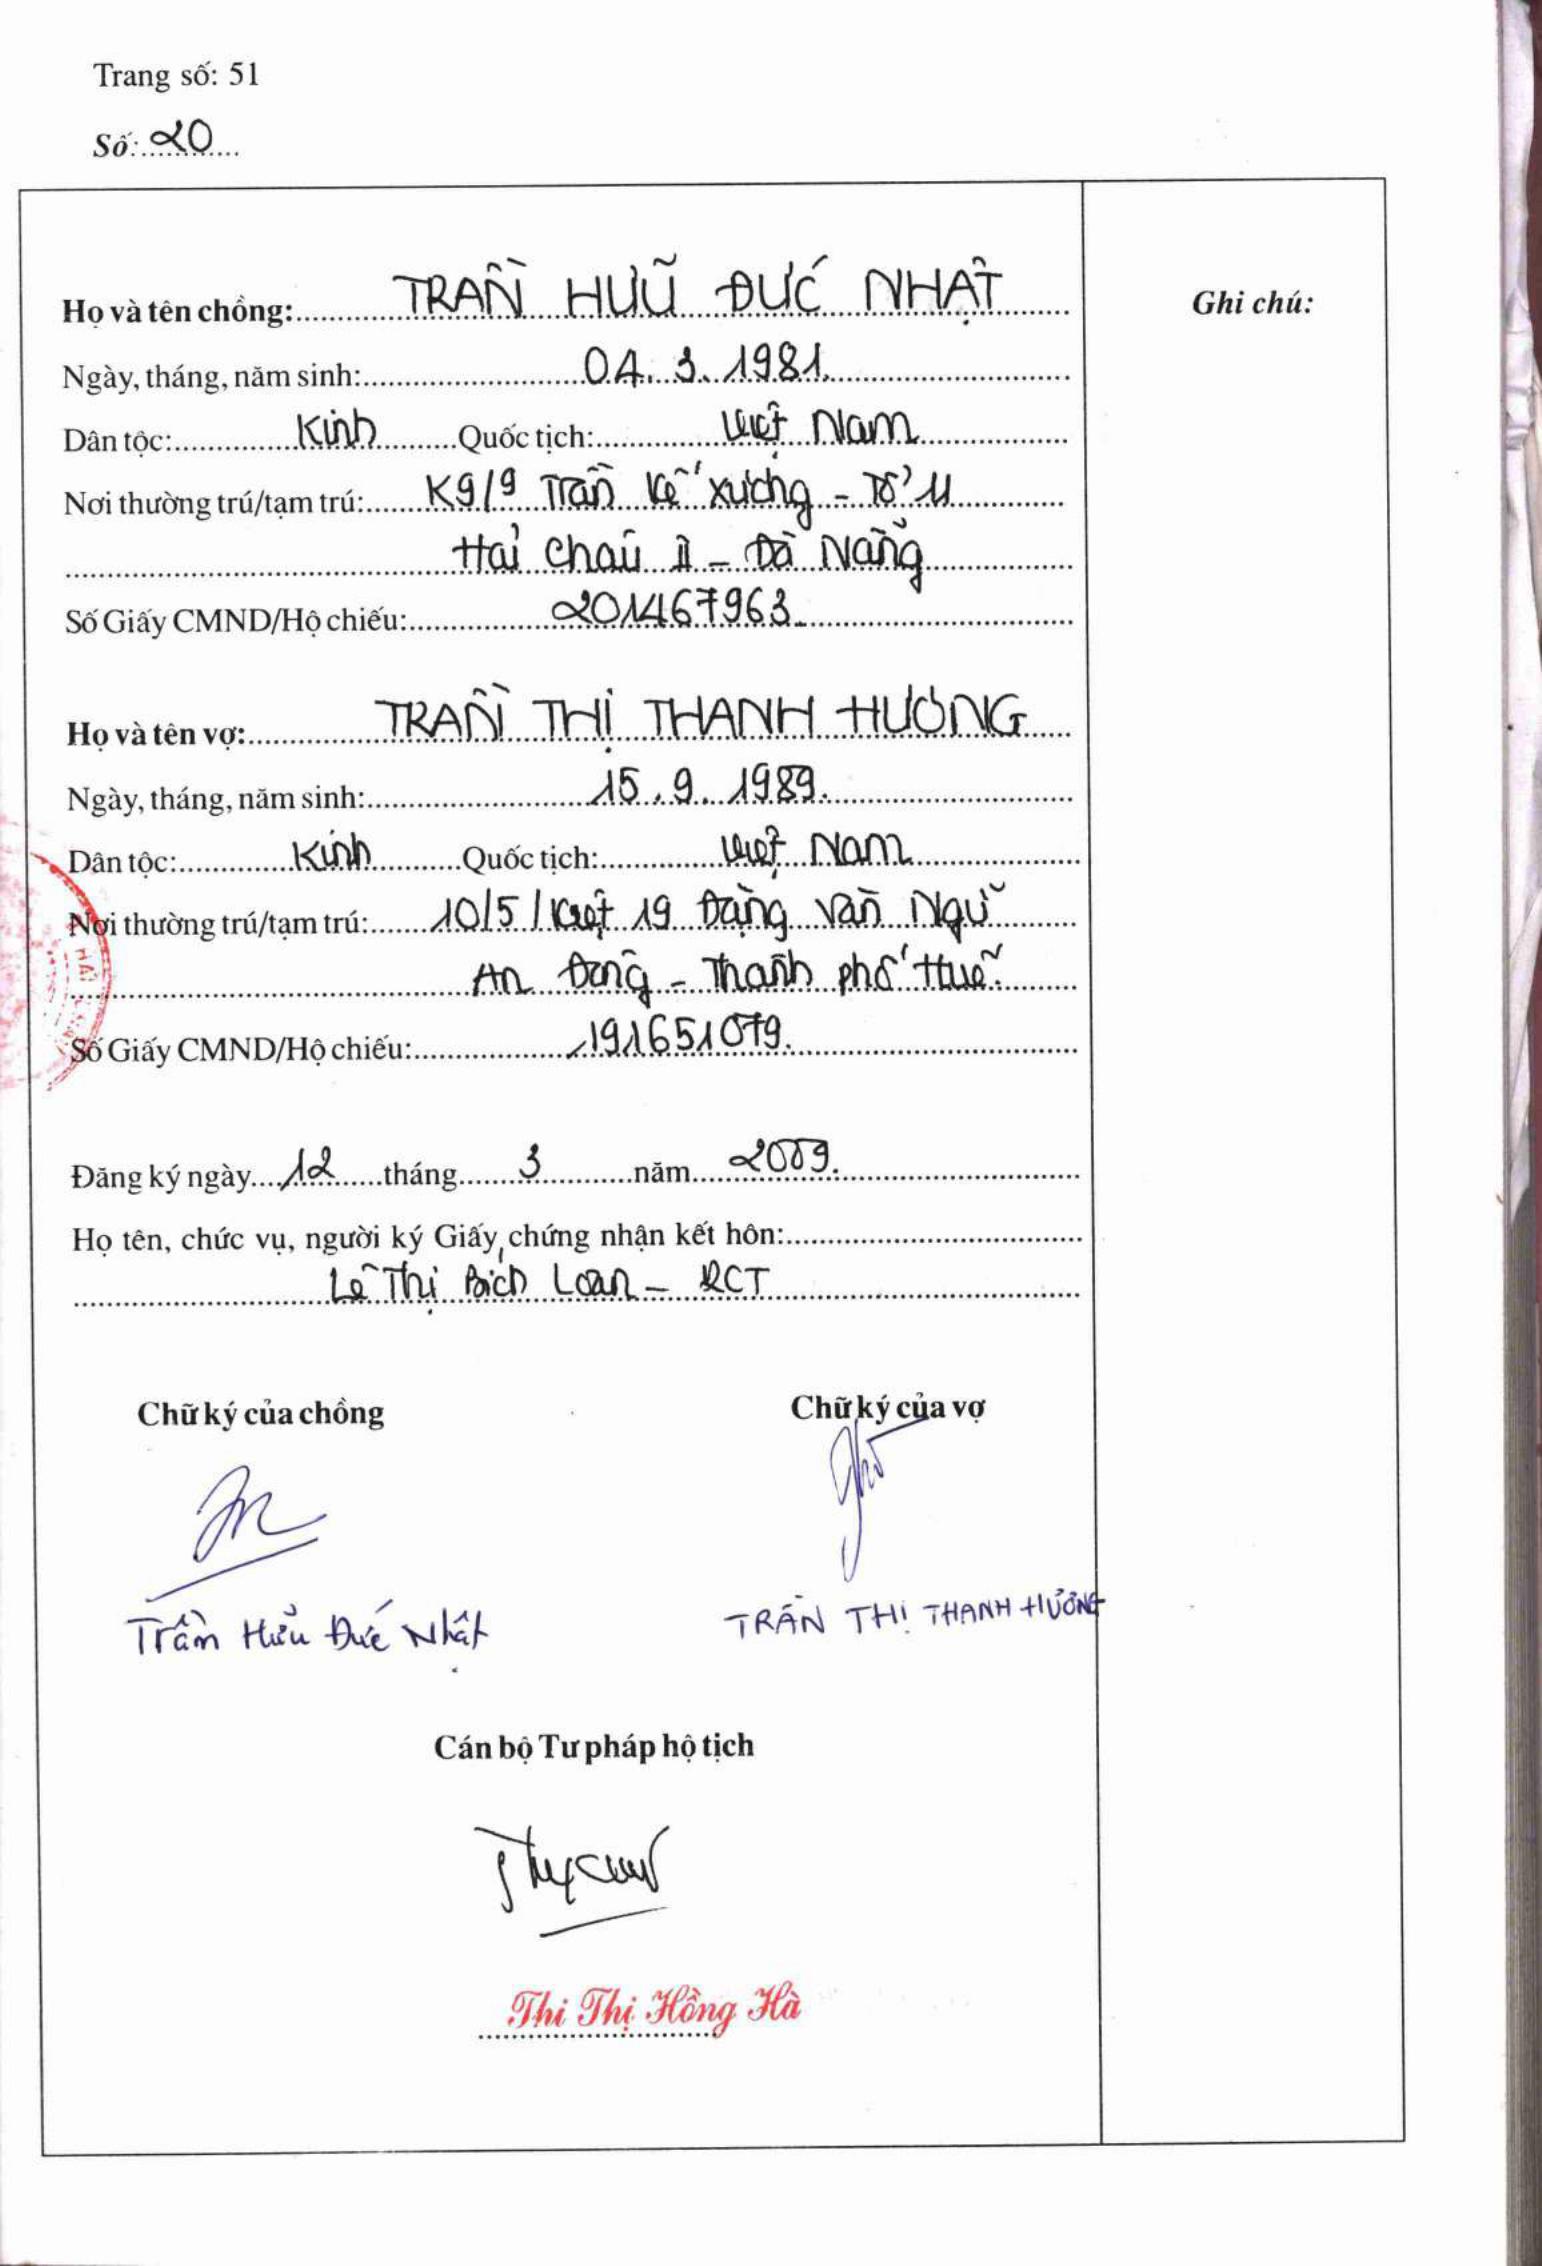 Trang số: 51
Số: 20
Ghi chú:
Họ và tên chồng: TRẦN HỮU ĐỨC NHẬT
Ngày, tháng, năm sinh: 04.3.1981.
Dân tộc: Kinh Quốc tịch: Việt Nam
Nơi thường trú/tạm trú: K9/9 Trần Kế Xương - Tổ 11
Hải Châu II - Đà Nẵng
Số Giấy CMND/Hộ chiếu: 201467963.
Họ và tên vợ: TRẦN THỊ THANH HƯƠNG
Ngày, tháng, năm sinh: 15.9.1989.
Dân tộc: Kinh Quốc tịch: Việt Nam
Nơi thường trú/tạm trú: 10/5/Kiệt 19 Đặng Văn Ngữ
An Đông - Thành phố Huế.
Số Giấy CMND/Hộ chiếu: 191651079.
Đăng ký ngày 12 tháng 3 năm 2009.
Họ tên, chức vụ, người ký Giấy chứng nhận kết hôn:
Lê Thị Bích Loan - PCT
Chữ ký của chồng Chữ ký của vợ
Trần Hữu Đức Nhật TRẦN THỊ THANH HƯƠNG
Cán bộ Tư pháp hộ tịch
Thi Thị Hồng Hà